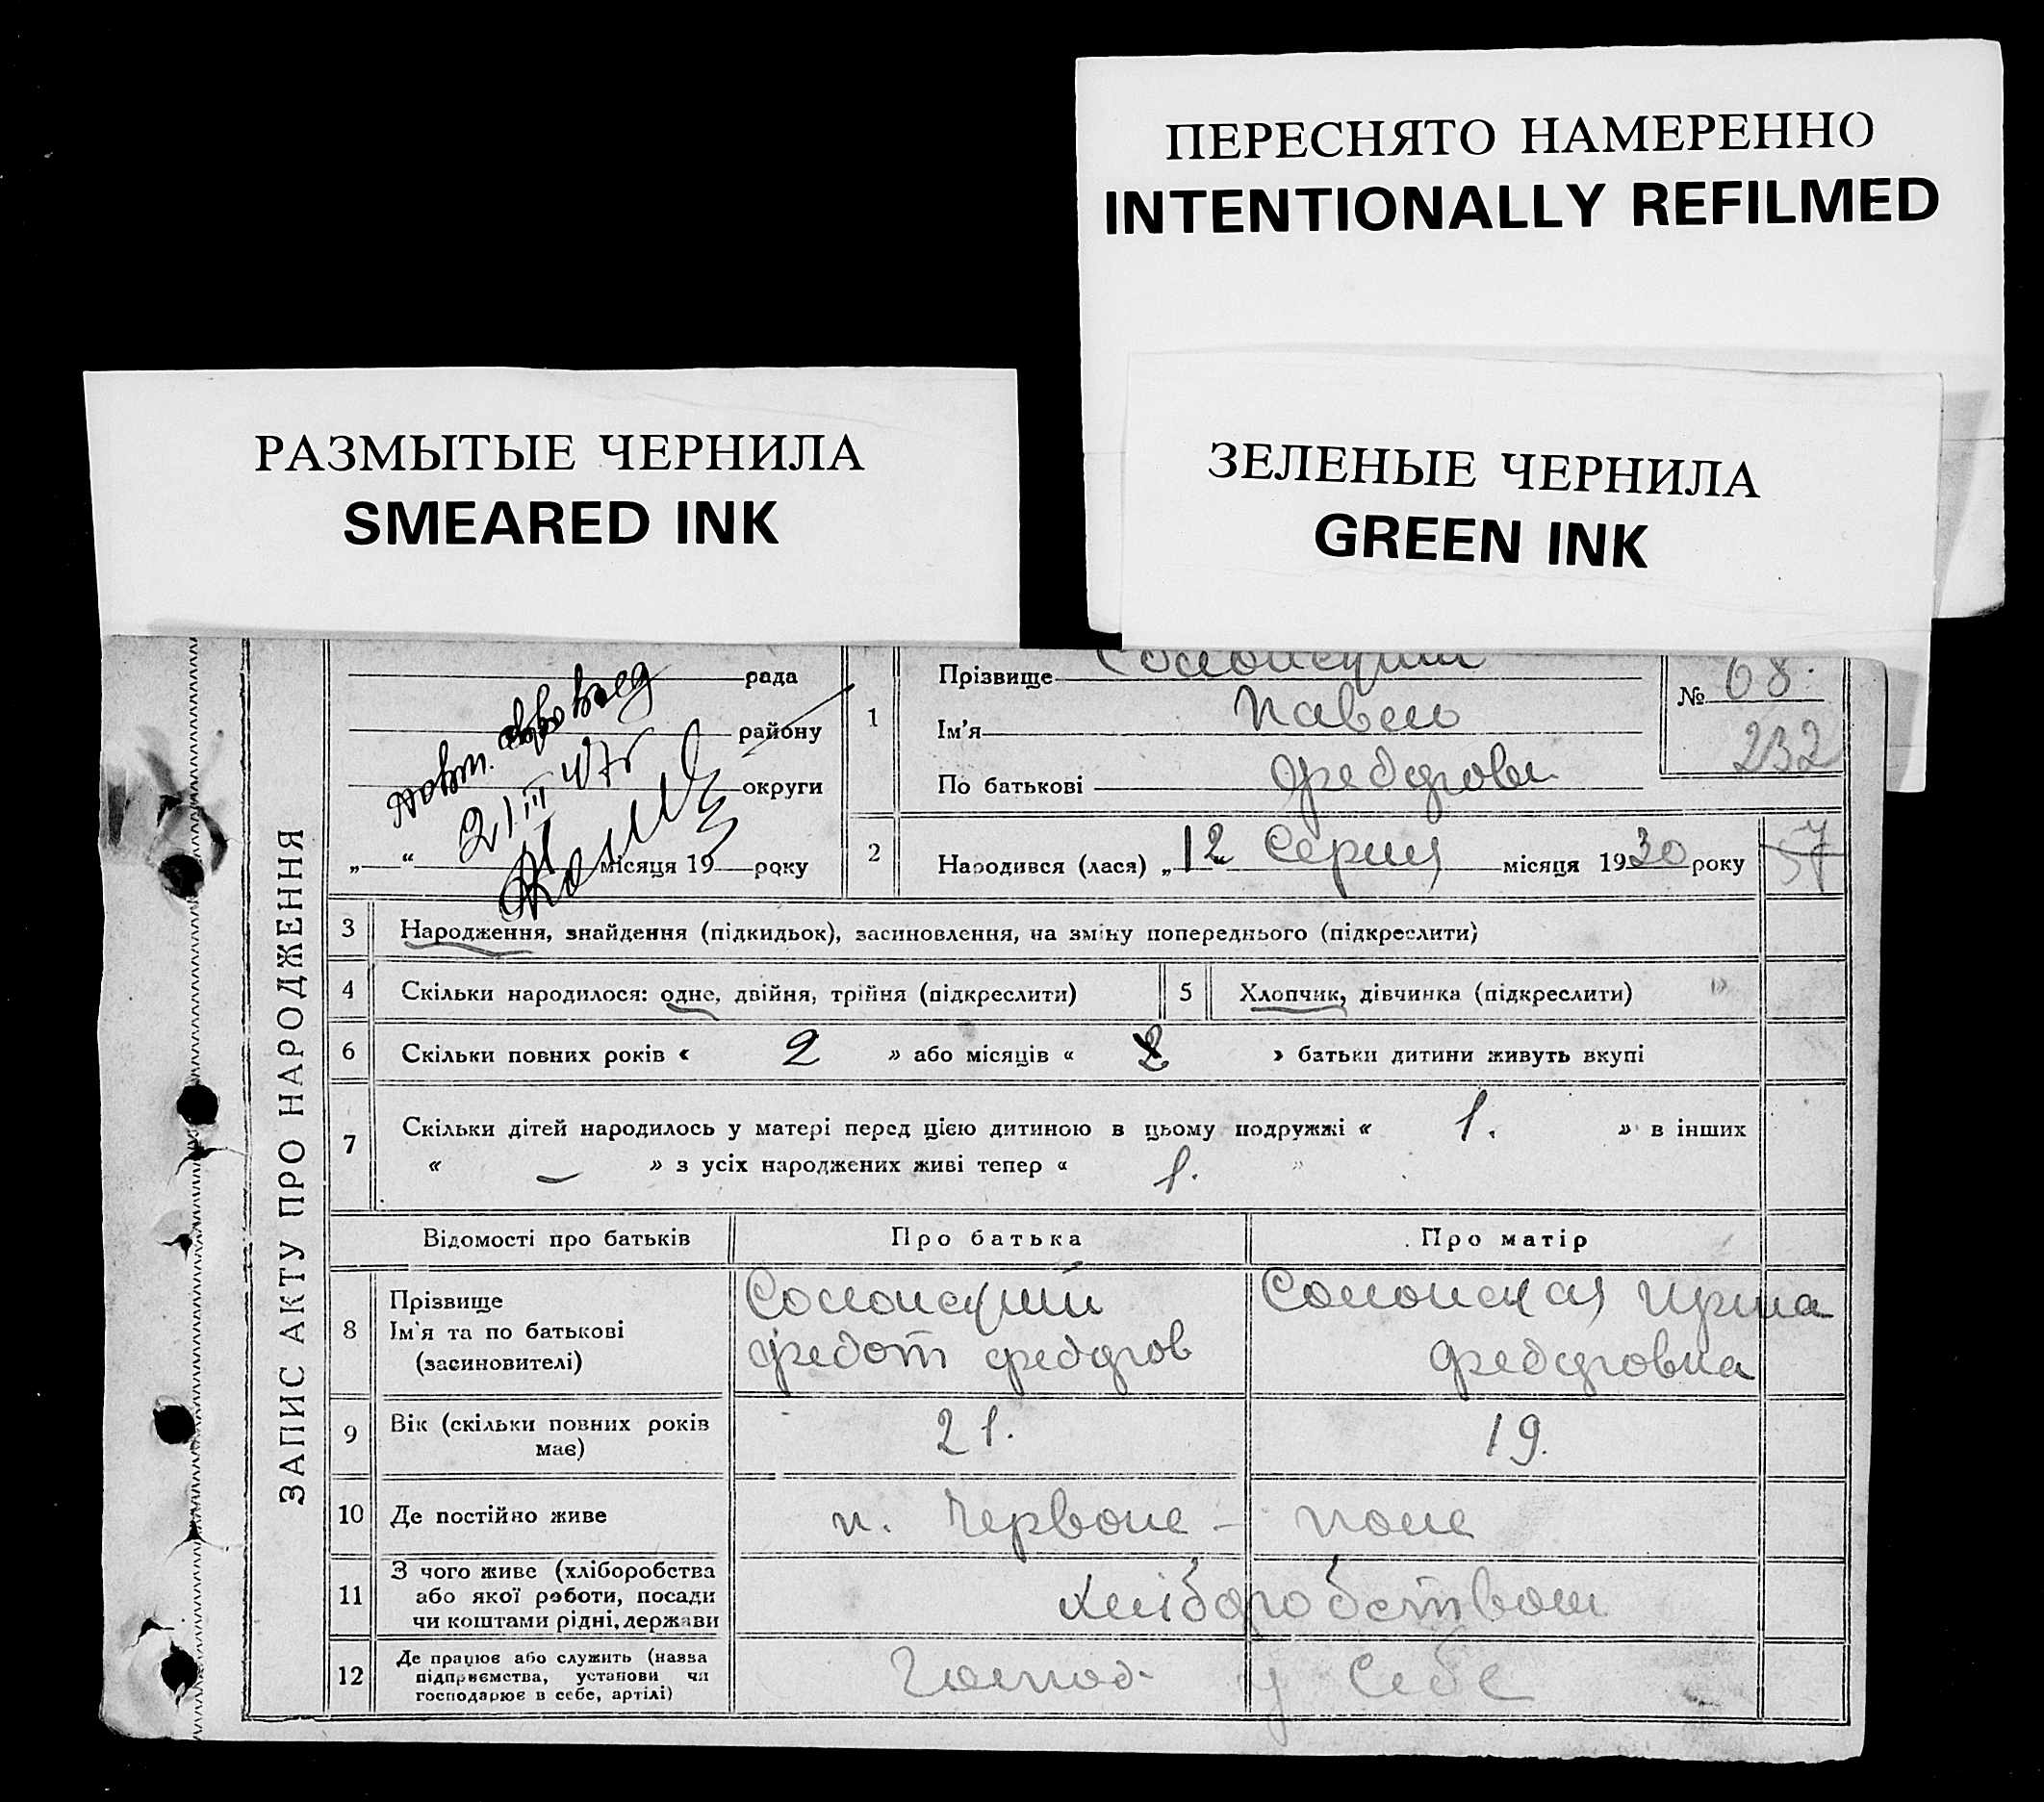 ПЕРЕСНЯТО НАМЕРЕННО
INTENTIONALLY REFILMED
РАЗМЫТЫЕ ЧЕРНИЛА
SMEARED INK
ЗЕЛЕНЫЕ ЧЕРНИЛА
GREEN INK
ЗАПИС АКТУ ПРО НАРОДЖЕННЯ
рада
району
округи
„ “ місяця 19 року
21 III 47г
1
Прізвище
Ім'я Павло
По батькові Федотови
№ 68.
232
2
Народився (лася) „ 12 “ Серпня місяця 1930 року
57
3 Народження, знайдення (підкидьок), засиновлення, на зміну попереднього (підкреслити)
4 Скільки народилося: одне, двійня, трійня (підкреслити)
5 Хлопчик, дівчинка (підкреслити)
6 Скільки повних років « 2 » або місяців « » батьки дитини живуть вкупі
7 Скільки дітей народилось у матері перед цією дитиною в цьому подружжі « 1. » в інших
« – » з усіх народжених живі тепер « 1. »
Відомості про батьків Про батька Про матір
8 Прізвище
Ім'я та по батькові
(засиновителі)
Федот
9 Вік (скільки повних років
має)
21. 19.
10 Де постійно живе п. Червоне - поле
11 З чого живе (хліборобства
або якої роботи, посади
чи коштами рідні, держави
хліборобством
12 Де працює або служить (назва
підприємства, установи чи
господарює в себе, артілі)
Господ. у себе